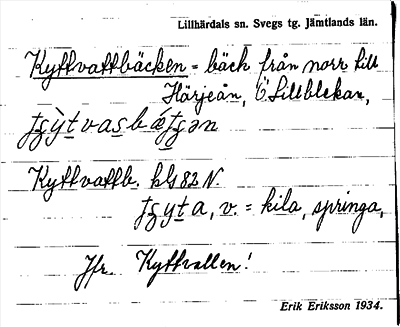 Lillhärdals sn. Svegs tg. Jämtlands län.
Kyttvattbäcken = bäck från norr till
Härjeån, Ö Lillblekan,
Kyttvattb. hS 82 N.
v. = kila, springa,
Jfr. Kyttvallen!
Erik Eriksson 1934.